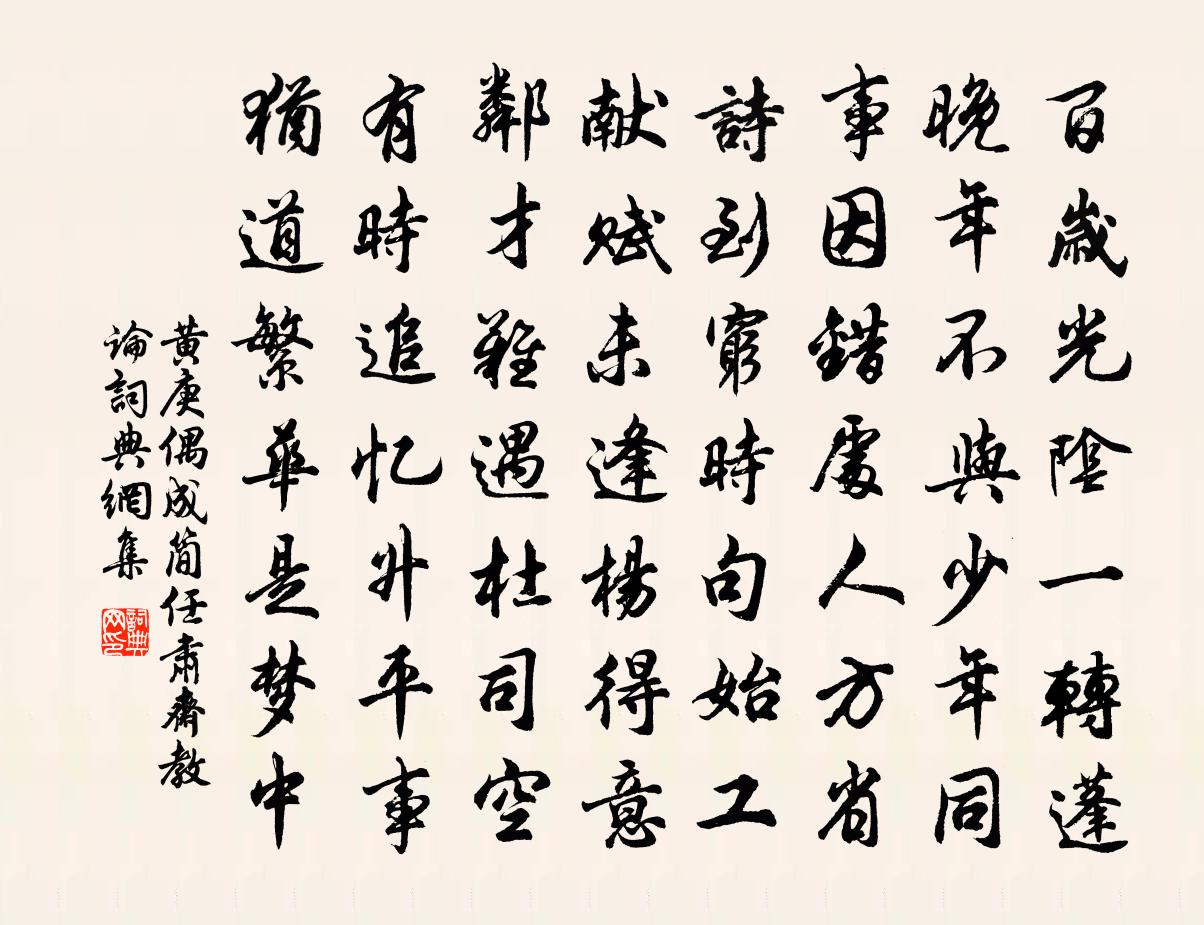 百歲光陰一轉蓬
晚年不與少年同
事因錯處人方省
詩到窮時句始工
献賦未逢楊得意
鄰才難遇杜司空
有時追忆升平事
猶道繁華是梦中
黄庚偶成简任肅齋教
論詞典網集
詞典网印